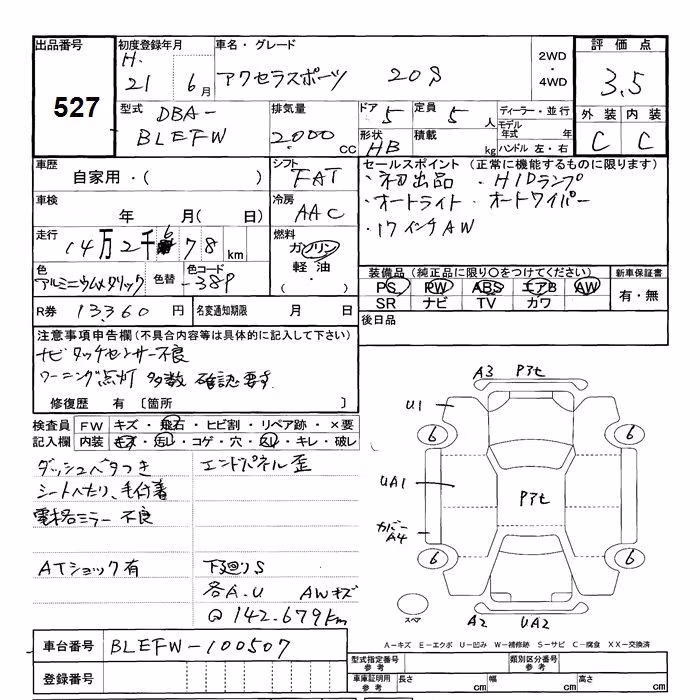 出品番号 527
初度登録年月 H. 21 6月
車名・グレード アクセラスポーツ 20S
2WD ・ 4WD
評価点 3.5
外装 C 内装 C
型式 DBA- BLEFW
排気量 2000 cc
ドア 5 定員 5 人
形状 HB 積載 kg
ディーラー・並行
モデル年式 年
ハンドル 左・右
車歴 自家用・( )
シフト FAT
車検 年 月( 日)
冷房 AAC
走行 14万2千678km
燃料 ガソリン 軽油 ・ ( )
色 アルミニウムメタリック 色替 色コード -38P
R券 13360 円 名変通知期限 月 日
セールスポイント (正常に機能するものに限ります)
・初出品 ・HIDランプ
・オートライト ・オートワイパー
・17インチAW
装備品 (純正品に限り○をつけてください) 新車保証書
PS PW ABS エアB AW 有・無
SR ナビ TV カワ
後日品
注意事項申告欄 (不具合内容等は具体的に記入して下さい)
ナビタッチセンサー不良
ワーニング点灯 多数 確認要す
修復歴 有 〔箇所 〕
検査員記入欄 FW キズ・飛石・ヒビ割・リペア跡・×要
内装 キズ・汚レ・コゲ・穴・スレ・キレ・破レ
ダッシュベタつき エンドパネル歪
シートヘたり、毛付着
電格ミラー不良
ATショック有 下廻りS
各A.U AWキズ
Q 142.679km
A3 Pアセ
U1
6 6
UA1 Pアセ
カバー A4
6 6
スペア A2 UA2
A-キズ E-エクボ U-凹み W-補修跡 S-サビ C-腐食 XX-交換済
車台番号 BLEFW-100507
登録番号
型式指定番号 参考 類別区分番号 参考
車庫証明用 参考 長さ cm 幅 cm 高さ cm